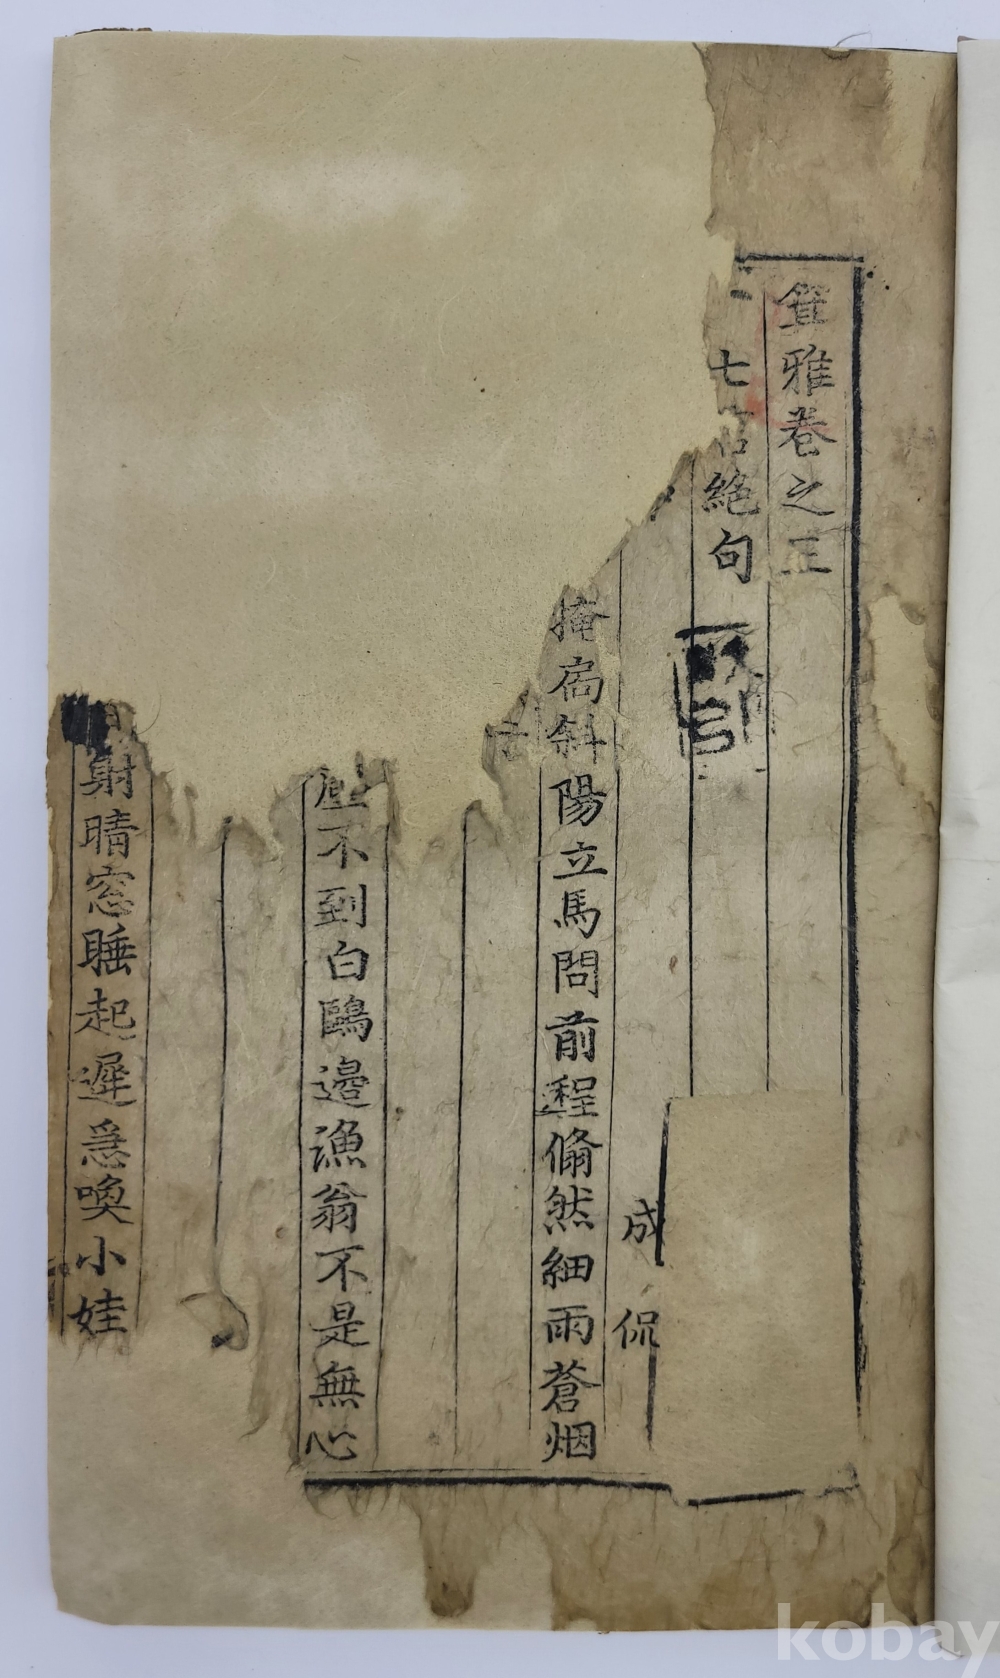 箕雅卷之三
七言絕句
成侃
掩扃斜陽立馬問前程翛然細雨蒼烟
不到白鷗邊漁翁不是無心
射晴窓睡起遲急喚小娃
kobay